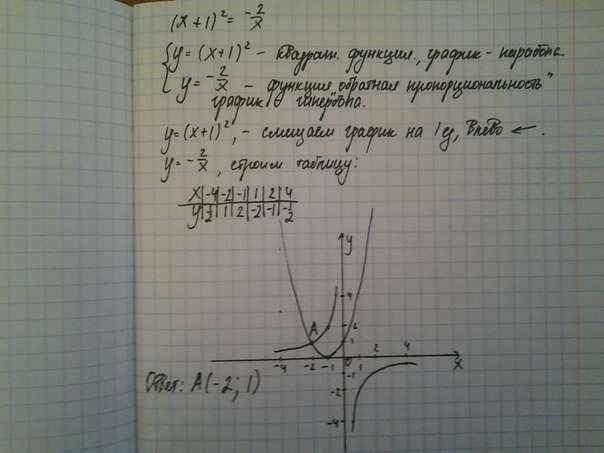 (x+1)² = -2/x
{ y=(x+1)² - квадрат. функция, график - парабола.
y = -2/x - функция "обратная пропорциональность"
график гипербола.
y=(x+1)², - смещаем график на 1 ед, влево ←.
y = -2/x, строим таблицу:
x | -4 | -2 | -1 | 1 | 2 | 4
y | 1/2 | 1 | 2 | -2 | -1 | -1/2
y
4
2
A
1
-4 -2 -1 0 1 2 4 x
-1
-2
-4
Ответ: A(-2; 1)